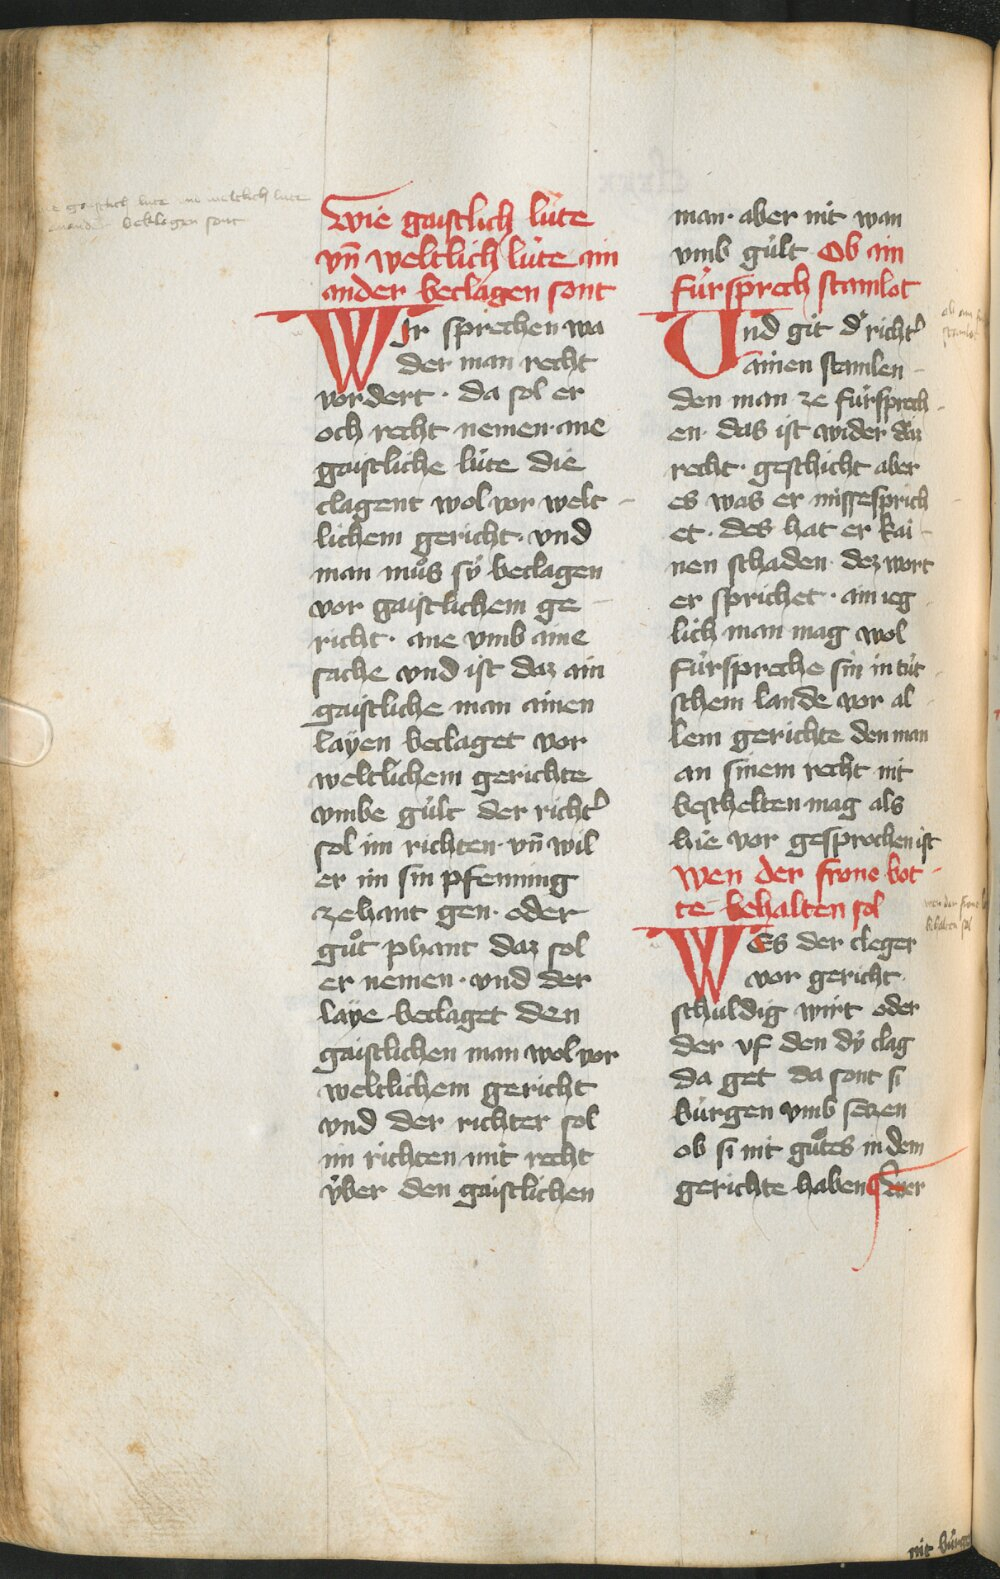 Wie gaistlich lúte
vn̄ weltlich lúte ain
ander beclagen sont
WJr sprechen wa
der man recht
vordert · da sol er
och recht nemen · ane
gaistliche lúte die
clagent wol vor welt
lichem gericht · vnd
man můs sÿ beclagen
vor gaistlichem ge
richt · ane vmb aine
sache vnd ist daz ain
gaistliche man ainen
laÿen beclaget vor
weltlichem gerichte
vmbe gúlt der richt͛
sol im richten · vn̄ wil
er im sin pfenning
zehant gen · oder
gůt phant daz sol
er nemen · vnd der
laÿe beclaget den
gaistlichen man wol vor
weltlichem gericht
vnd der richter sol
im richten mit recht
v́ber den gaistlichen
man · aber nit wan
vmb gúlt Ob ain
fúrsprech stamlot
Und git d͛ richt͛
ainen stamlen
den man ze fúrsprech
en · das ist wider daz
recht · geschicht aber
es was er missesprich
et · des hat er kai
nen schaden · dez wort
er sprichet · ain ieg
lich man mag wol
fúrspreche sin in tút
schem lande vor al
lem gerichte den man
an sinem recht nit
beschelten mag als
hie vor gesprochen ist
Wen der frone bot
te behalten sol
WEs der cleger
vor gericht
schuldig wirt oder
der vf den dÿ clag
da get da sont si
búrgen vmb setzen
ob si nit gůtes in dem
gerichte haben Swer
gaistlich lute
beklagen sont
ob ain
wen der frone
behalten sol
nit